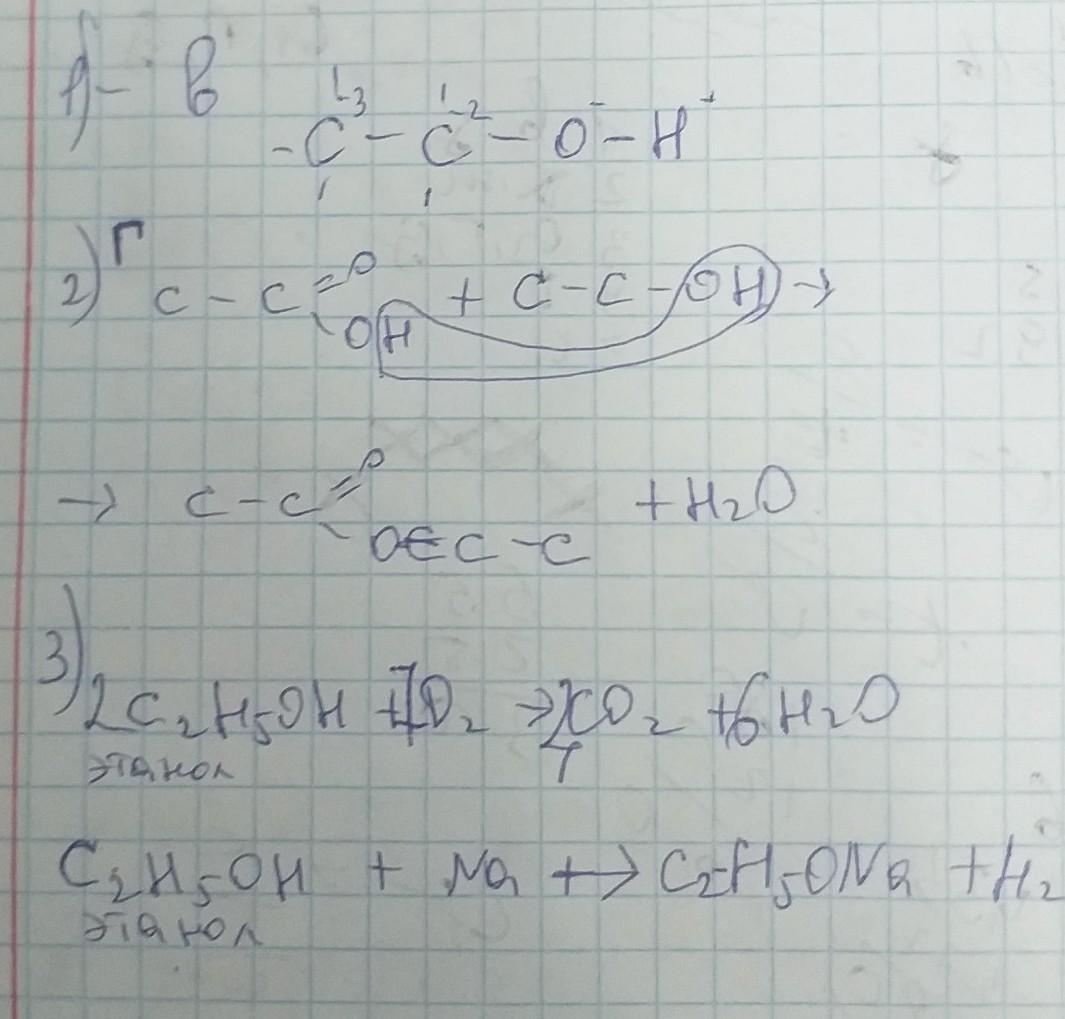 1) - В
-C³ - C⁻² - O⁻ - H⁺
2) Г C - C = O OH + C - C - OH →
→ C - C = O OC - C + H2O
3) 2C2H5OH + 7O2 → 4CO2 + 6H2O
этанол
C2H5OH + Na → C2H5ONa + H2
этанол